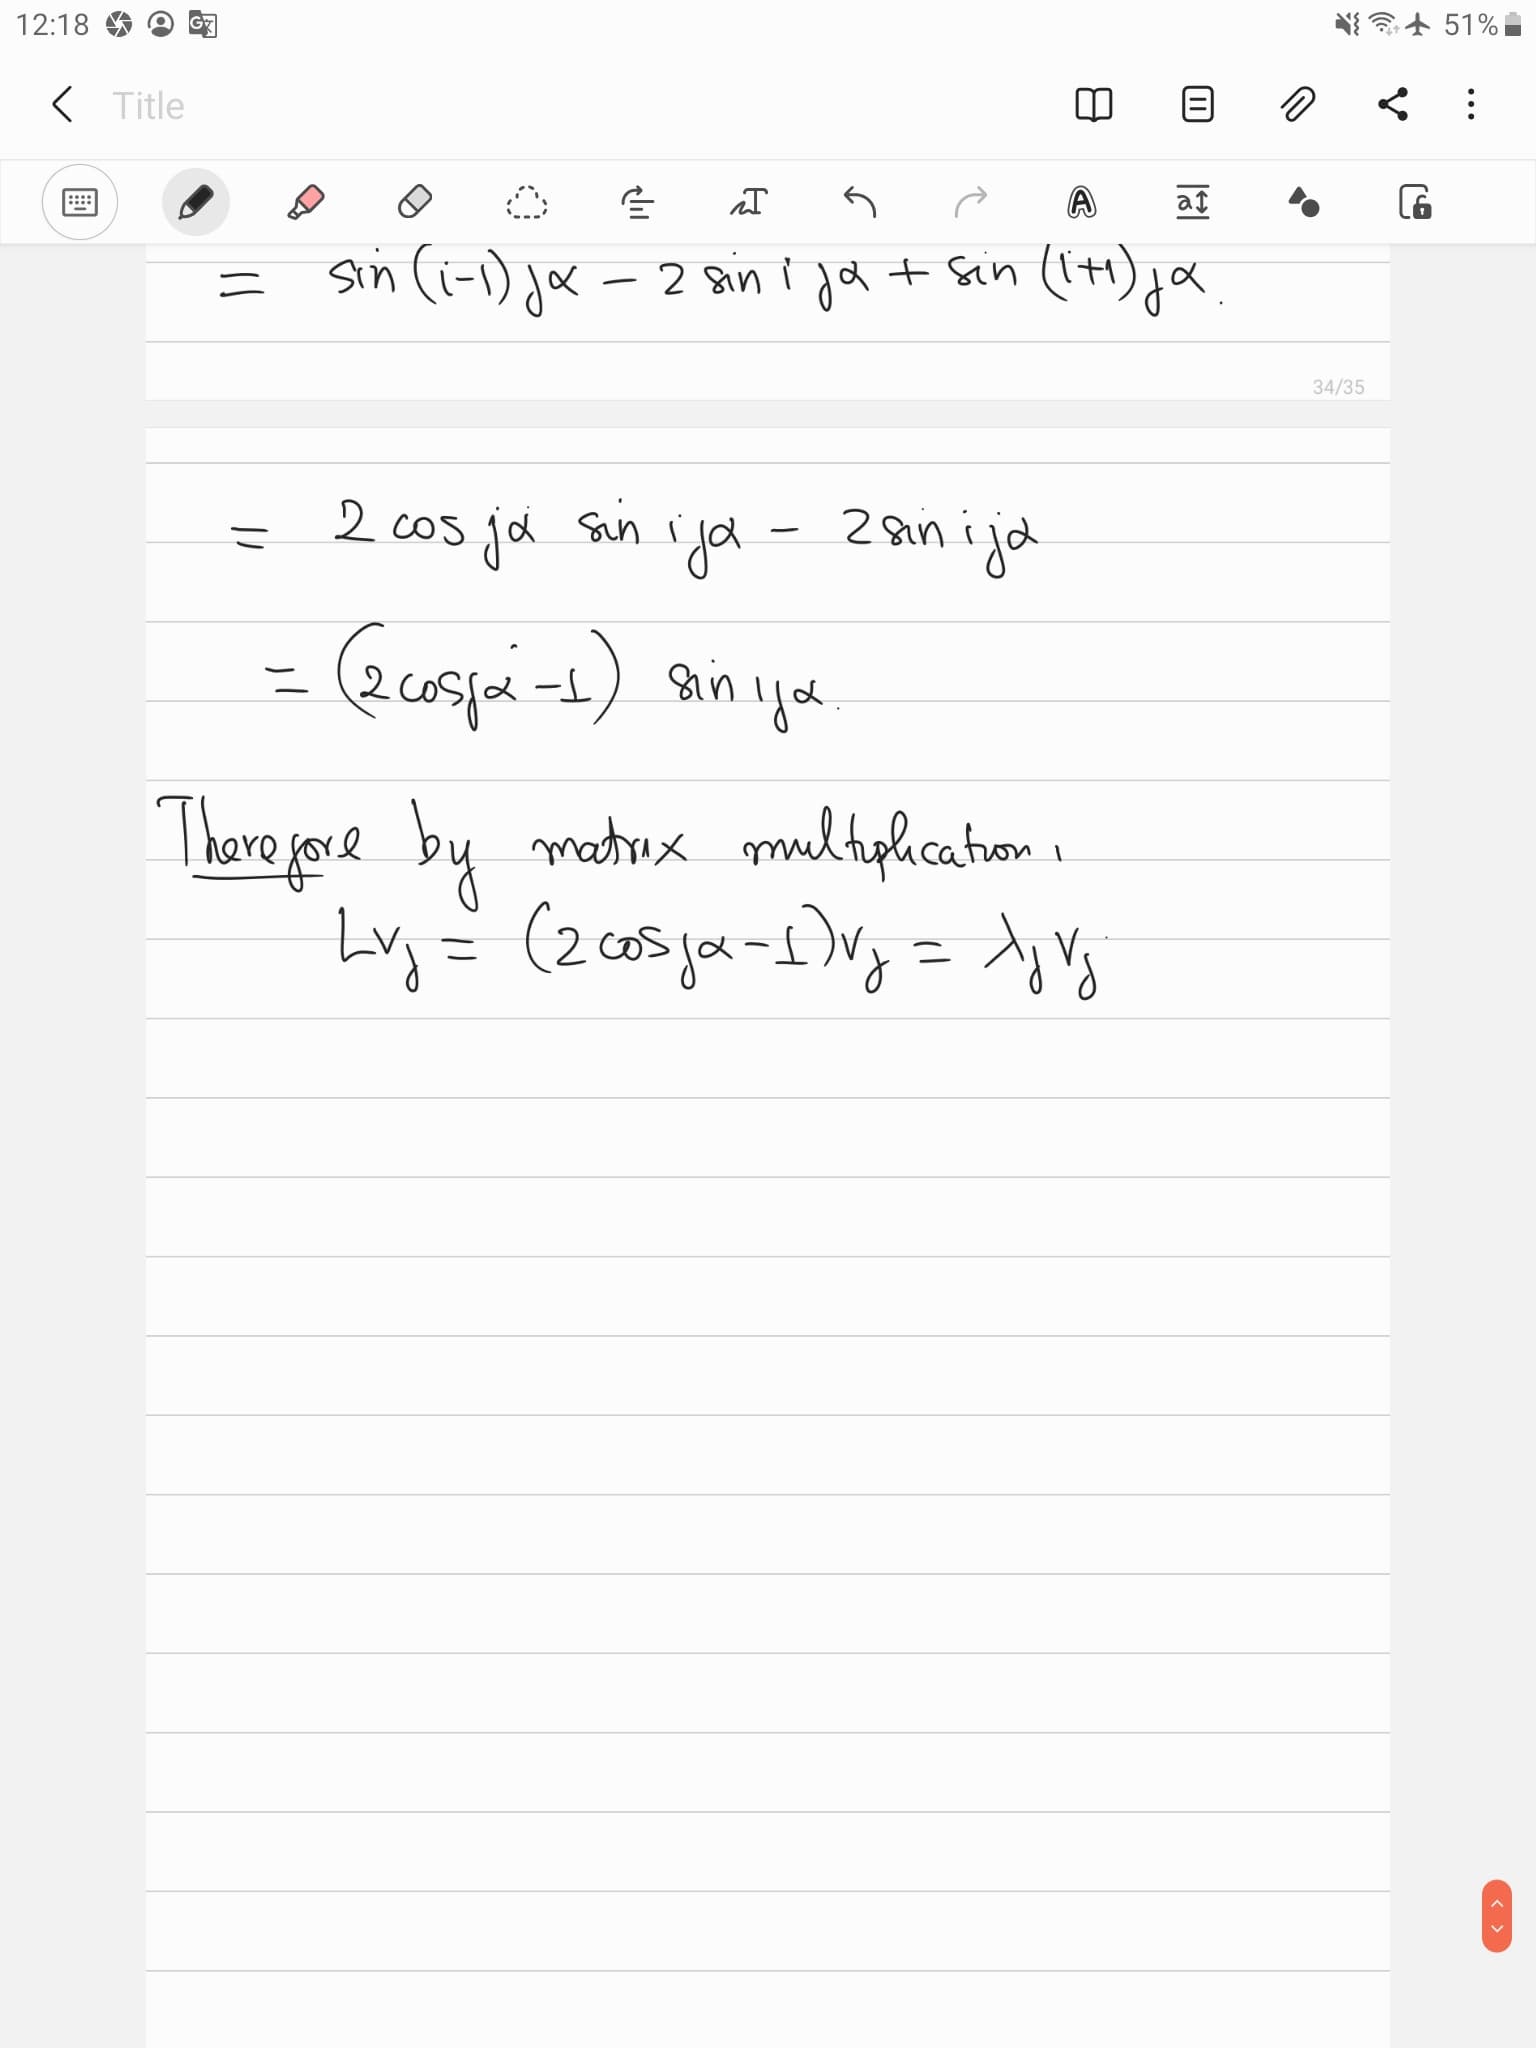 12:18 51%
Title
= sin (i-1) jα - 2 sin i jα + sin (i+1) jα.
34/35
= 2 cos jα sin ijα - 2 sin ijα
= (2 cos jα - 1) sin ijα.
Therefore by matrix multiplication,
Lvⱼ = (2 cos jα - 1) vⱼ = λⱼ vⱼ